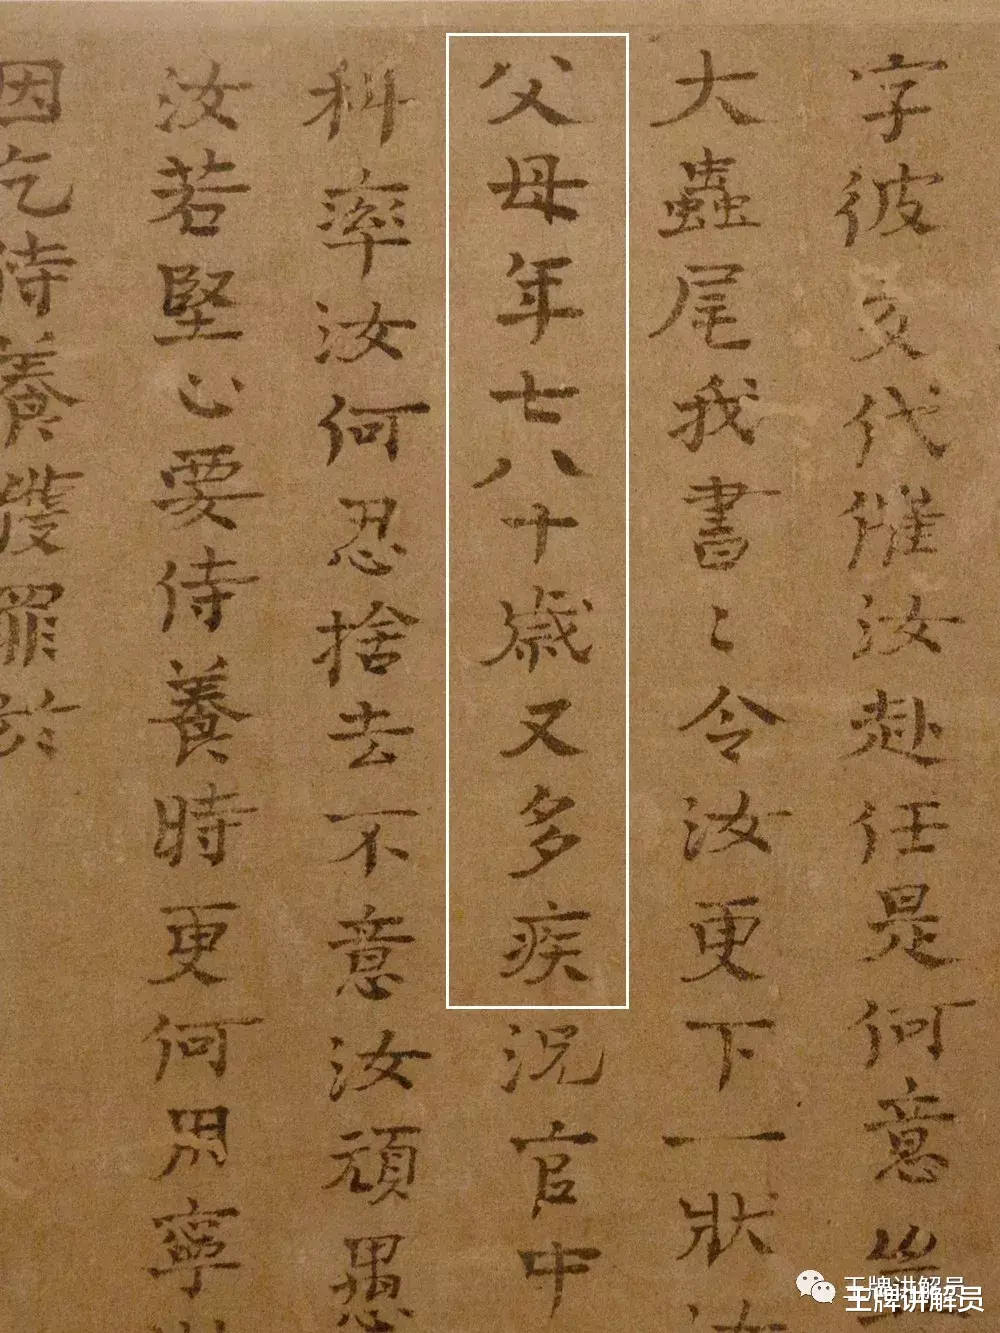 字彼文代催汝赴任是何意豈
大蟲尾我書〻令汝更下一狀汝
父母年七八十歲又多疾況官中
科率汝何忍捨去不意汝頑愚
汝若堅心要侍養時更何用寧
因乞侍養獲罪於
王牌讲解员
王牌讲解员